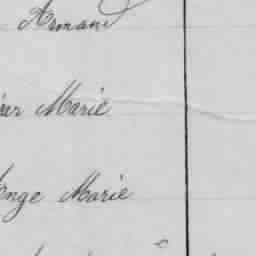 Armand
Marie
ange Marie